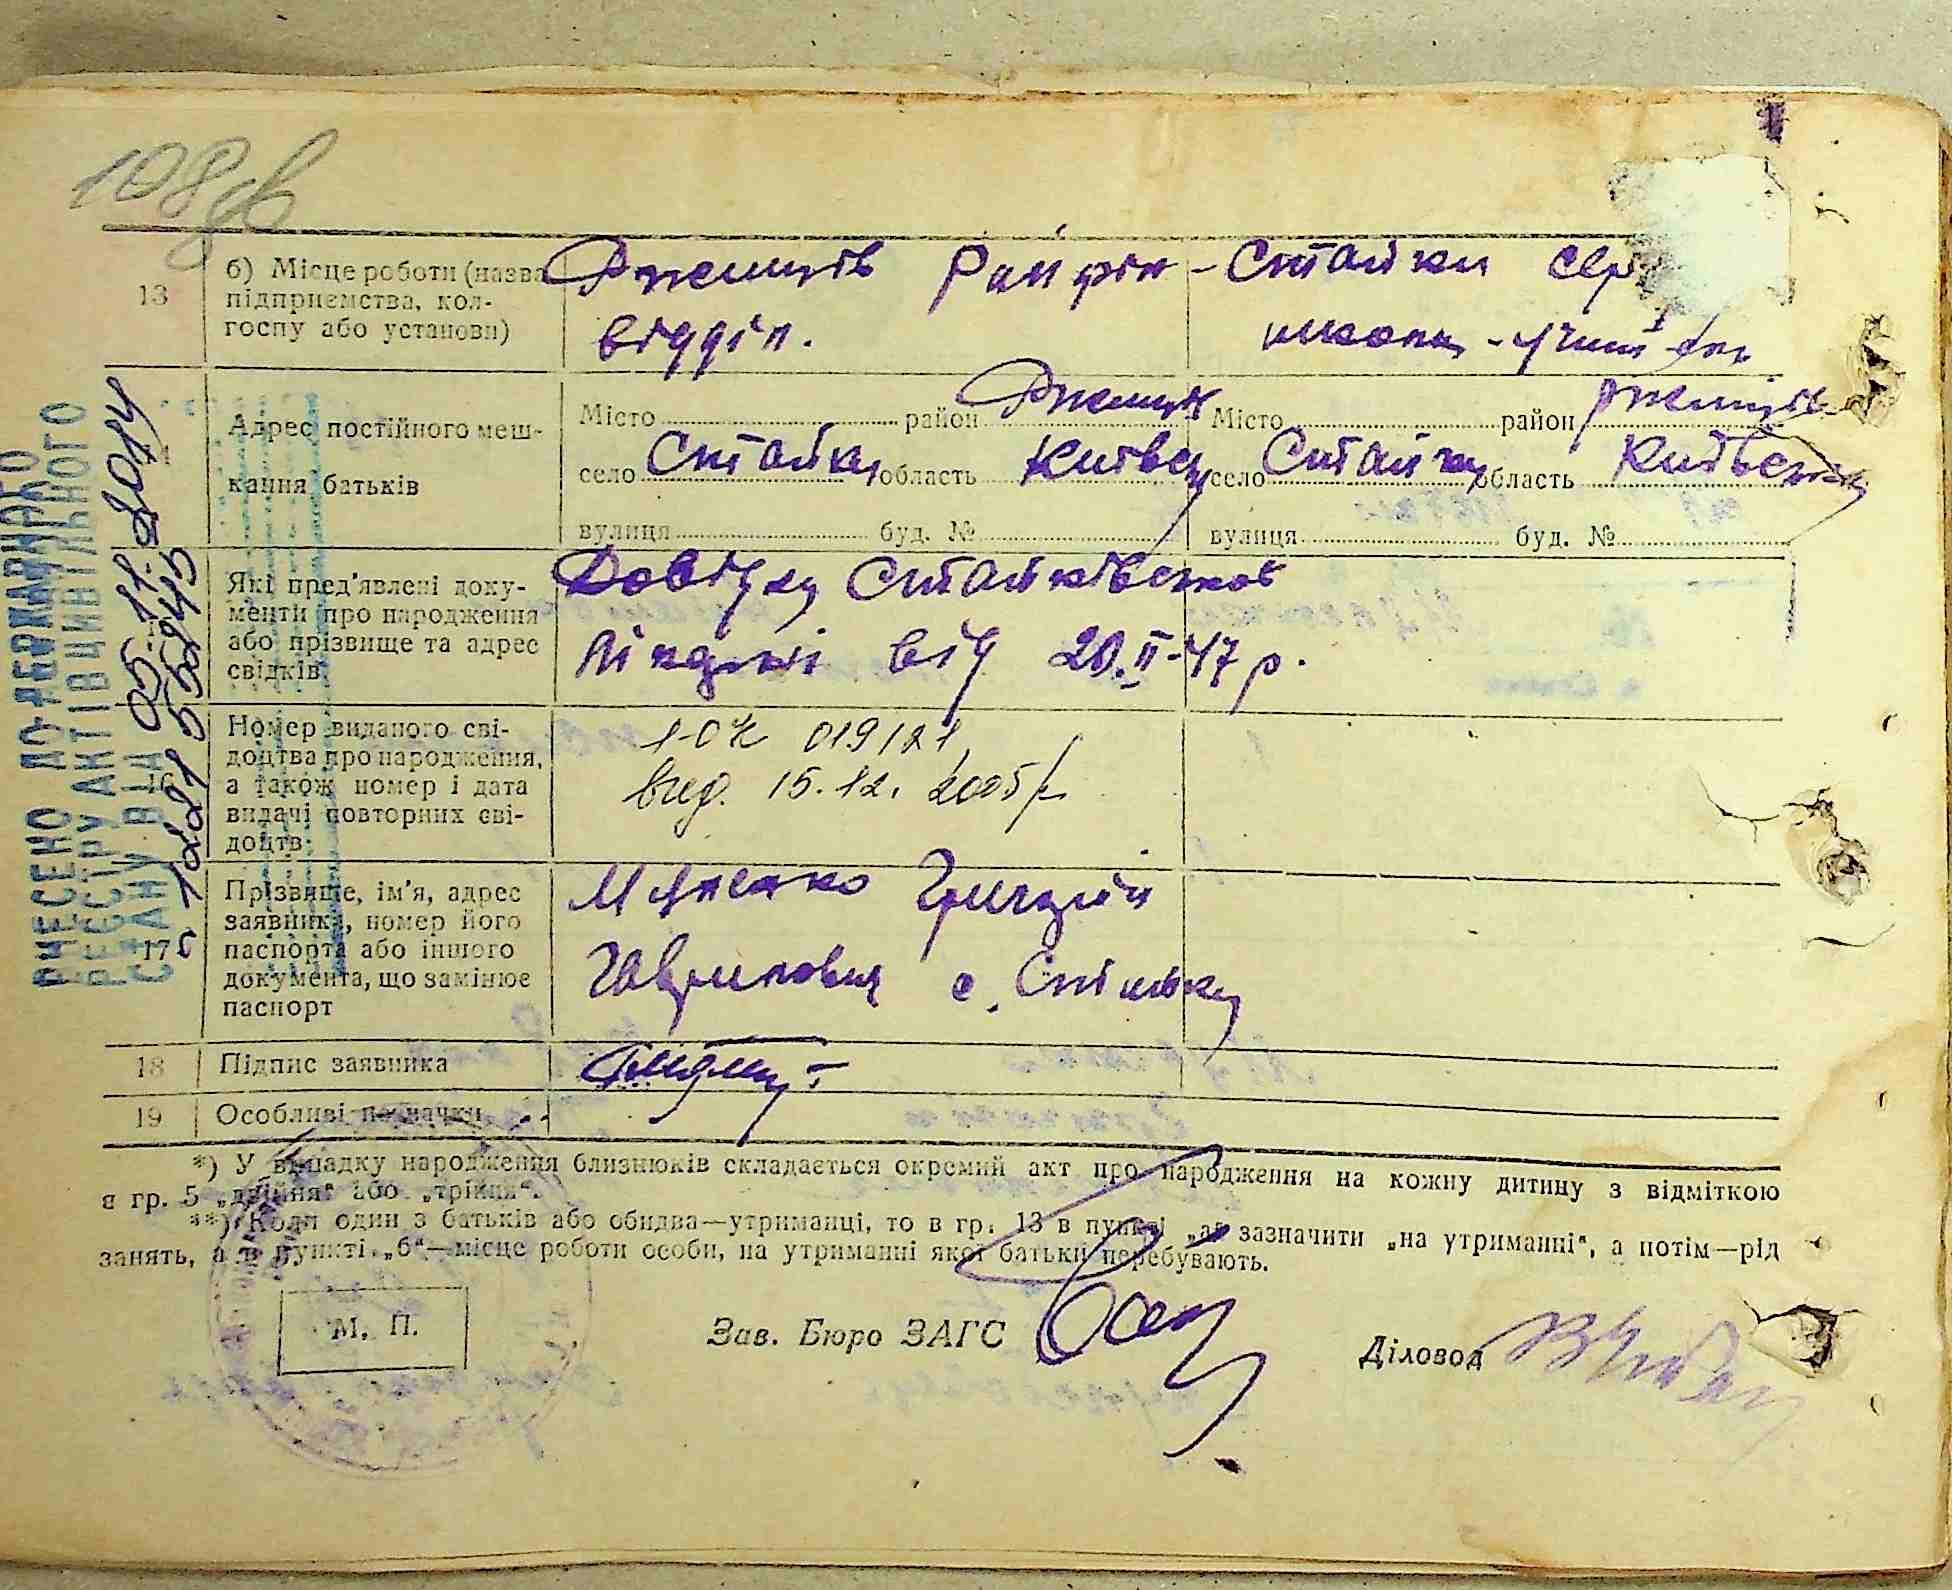 108зв
13
б) Місце роботи (назва підприємства, колгоспу або установи)
Ржищів Райфін-
відділ.
Стайки сер
школи
Адрес постійного мешкання батьків
Місто район Ржищів
село Стайки область Київськ
вулиця буд. №
Місто район Ржищів
село Стайки область Київськ
вулиця буд. №
Які пред'явлені документи про народження або прізвище та адрес свідків
Довідку Стайківської
лікарні від 20.II-47 р.
16
Номер виданого свідоцтва про народження, а також номер і дата видачі повторних свідоцтв
019121
вид. 15.12. 2005
17
Прізвище, ім'я, адрес заявника, номер його паспорта або іншого документа, що замінює паспорт
Григорій
Гаврилович с. Стайки
18
Підпис заявника
19
Особливі позначки
*) У випадку народження близнюків складається окремий акт про народження на кожну дитину з відміткою
в гр. 5 „двійня" або „трійня".
**) Коли один з батьків або обидва—утриманці, то в гр. 13 в пункті „а" зазначити „на утриманні", а потім—рід
занять, а в пункті „б"—місце роботи особи, на утриманні якої батьки перебувають.
М. П.
Зав. Бюро ЗАГС
Діловод
ВНЕСЕНО ДО ДЕРЖАВНОГО
РЕЄСТРУ АКТІВ ЦИВІЛЬНОГО
СТАНУ ВІД 05.11.2014